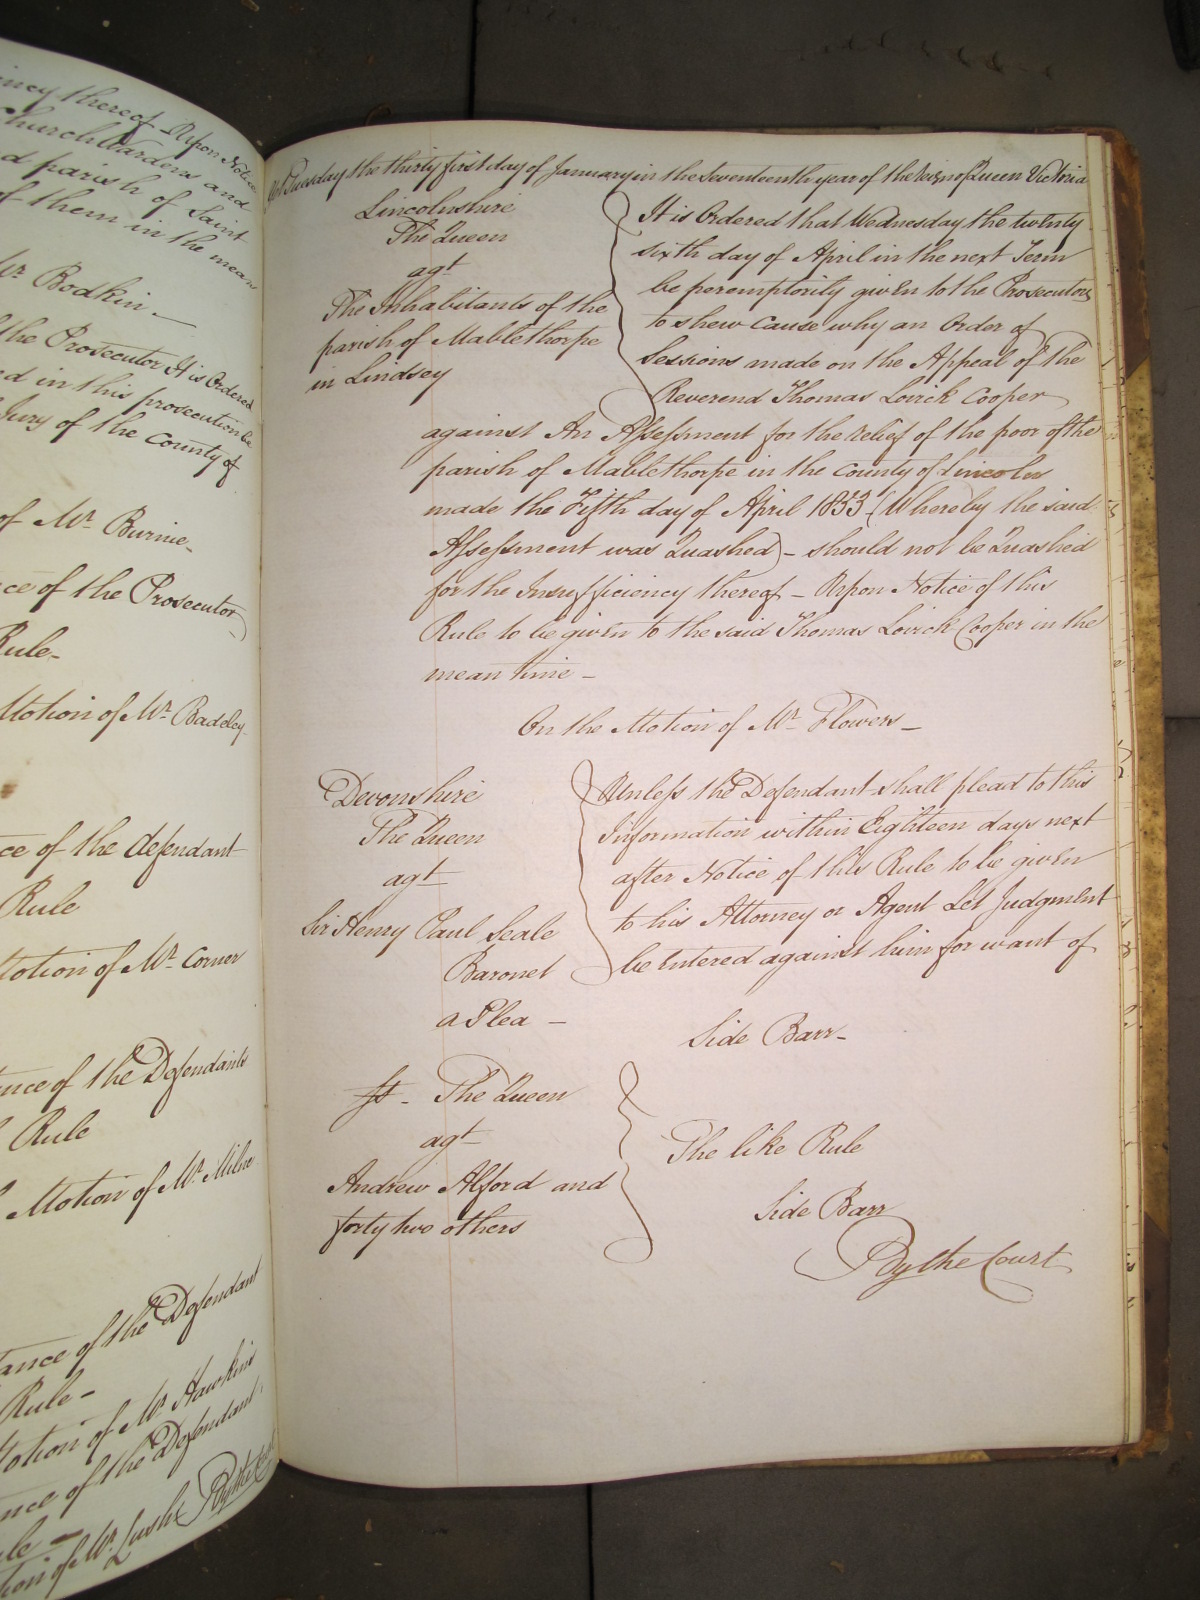 iency thereof Upon Notice
Churchwardens and
d parish of Saint
f them in the mean
Mr Bodkin
the Prosecutor It is Ordered
ed in this prosecution be
Jury of the County of
of Mr Burnie
ce of the Prosecutor
Rule
Motion of Mr Badeley
ce of the defendant
Rule
Motion of Mr Corner
ance of the Defendants
Rule
Motion of Mr Milne
tance of the Defendant
Rule
Motion of Mr Hawkins
nce of the Defendant
ule
tion of Mr Lush By the Court
Yet Tuesday the thirty first day of January in the Seventeenth year of the Reign of Queen Victoria
Lincolnshire
The Queen
agt
The Inhabitants of the
parish of Mablethorpe
in Lindsey
It is Ordered that Wednesday the twenty
sixth day of April in the next Term
be peremptorily given to the Prosecutors
to shew Cause why an Order of
Sessions made on the Appeal of the
Reverend Thomas Lovick Cooper
against An Assessment for the relief of the poor of the
parish of Mablethorpe in the County of Lincoln
made the Fifth day of April 1853 (Whereby the said
Assessment was Quashed) – should not be Quashed
for the Insufficiency thereof – Upon Notice of this
Rule to be given to the said Thomas Lovick Cooper in the
mean time –
On the Motion of Mr Flowers –
Devonshire
The Queen
agt
Sir Henry Paul Seale
Baronet
Unless the Defendant shall plead to this
Information within Eighteen days next
after Notice of this Rule to be given
to his Attorney or Agent Let Judgment
be Entered against him for want of
a Plea –
Side Barr –
The Queen
agt
Andrew Alford and
forty two others
The like Rule
Side Barr
By the Court